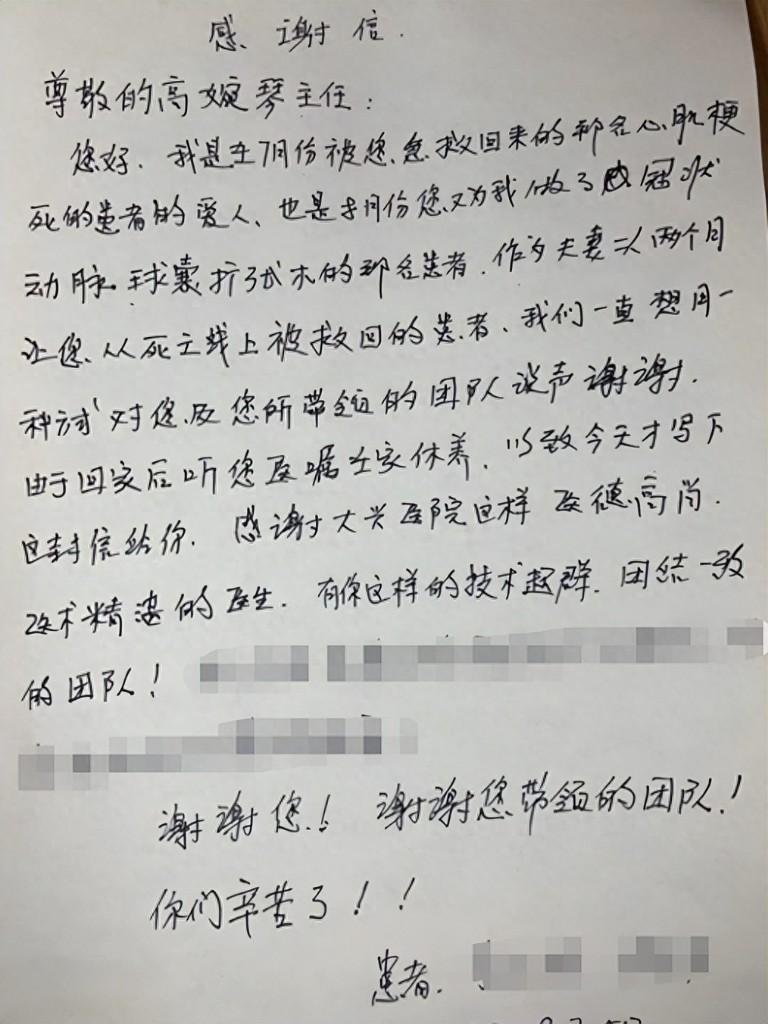 感谢信.
尊敬的高婉琴主任:
您好. 我是在7月份被您急救回来的那名心肌梗
死的患者的爱人、也是本月份您又为我做了冠状
动脉球囊扩张术的那名患者. 作为夫妻二人两个月
让您从死亡线上被救回的患者、我们一直想用一
种方式对您及您所带领的团队说声谢谢.
由于回家后听您医嘱在家休养、以致今天才写下
这封信给你. 感谢大兴医院这样医德高尚.
医术精湛的医生. 有你这样的技术超群. 团结一致
的团队!
谢谢您! 谢谢您带领的团队!
你们辛苦了!!
患者.